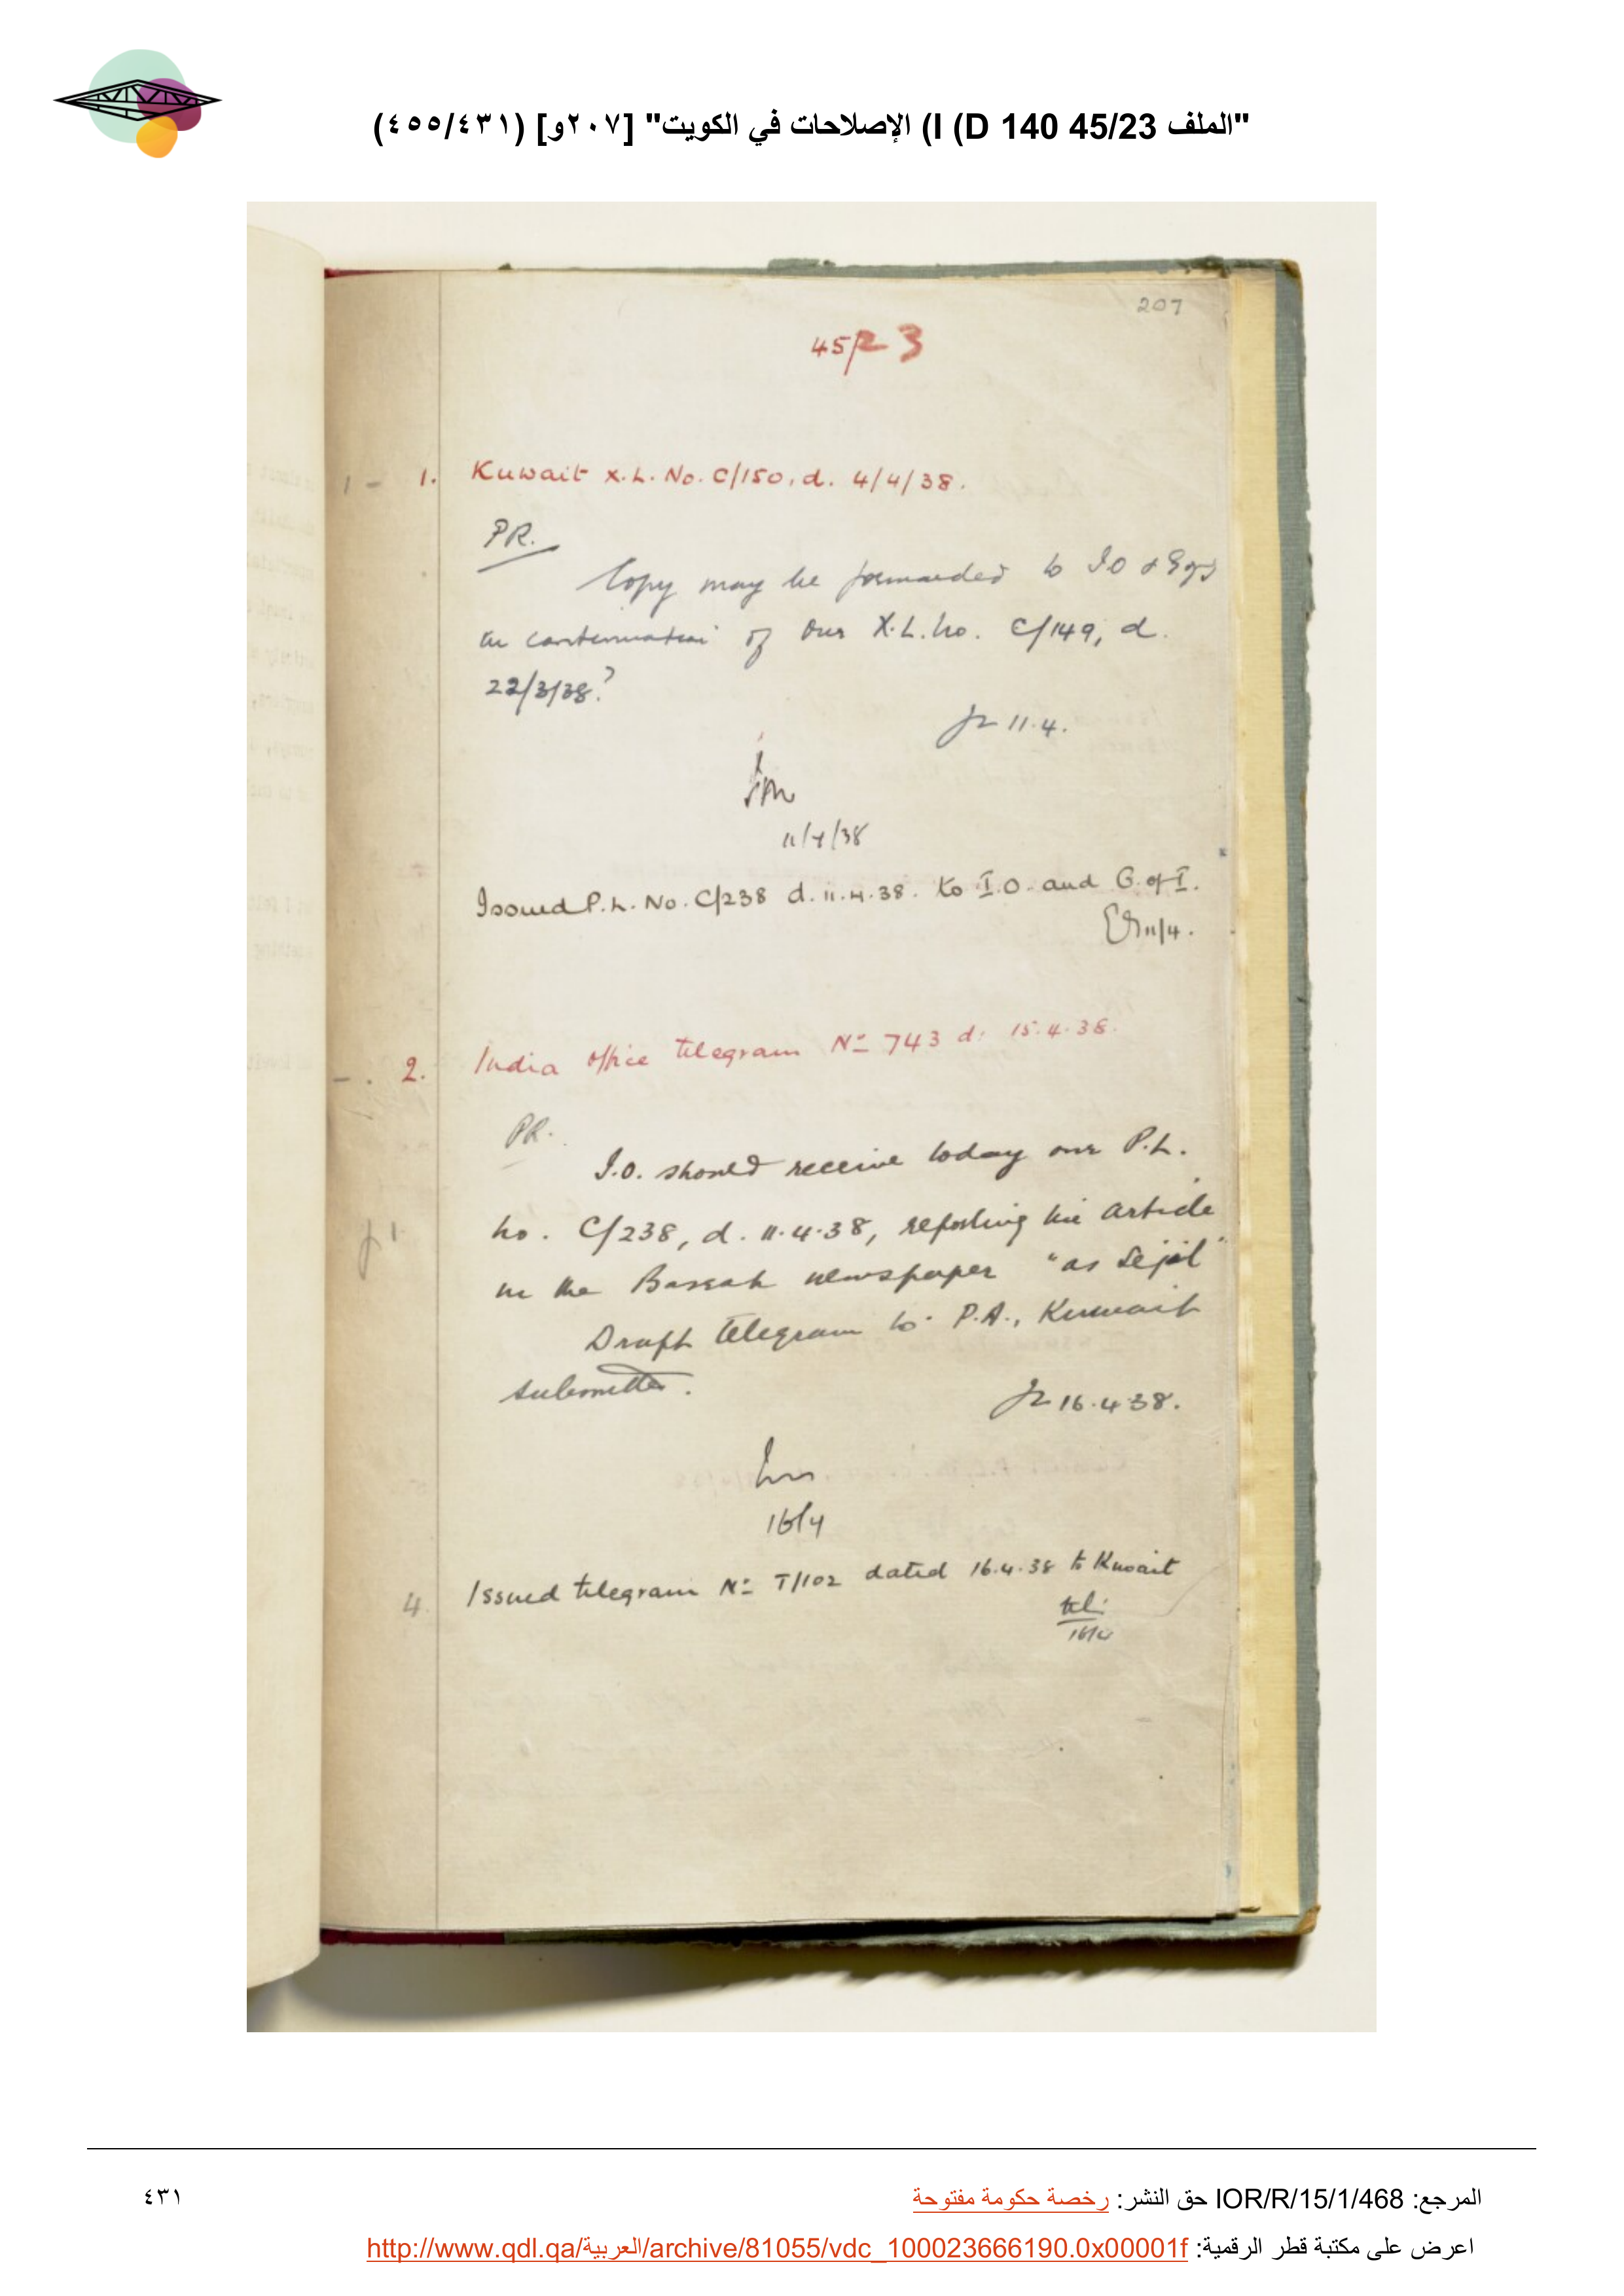 "الملف 45/23 I (D 140) الإصلاحات في الكويت" [٢٠٧و] (٤٥٥/٤٣١)
207
45/23
1 - 1. Kuwait X.L. No. C/150, d. 4/4/38.
PR.
Copy may be forwarded to I.O &
in continuation of our X.L. No. C/149, d.
22/3/38?
11.4.
11/4/38
Issued P.L. No. C/238 d. 11.4.38. to I.O. and G. of I.
11/4.
- . 2. India Office telegram Nº 743 d. 15.4.38.
PR.
I.O. should receive today our P.L.
No. C/238, d. 11.4.38, reporting the article
in the Basrah newspaper "as Sejil"
Draft telegram to P.A., Kuwait
submitted.
16.4.38.
16/4
4. Issued telegram Nº T/102 dated 16.4.38 to Kuwait
16/4
المرجع: IOR/R/15/1/468 حق النشر: رخصة حكومة مفتوحة
٤٣١
اعرض على مكتبة قطر الرقمية: http://www.qdl.qa/العربية/archive/81055/vdc_100023666190.0x00001f